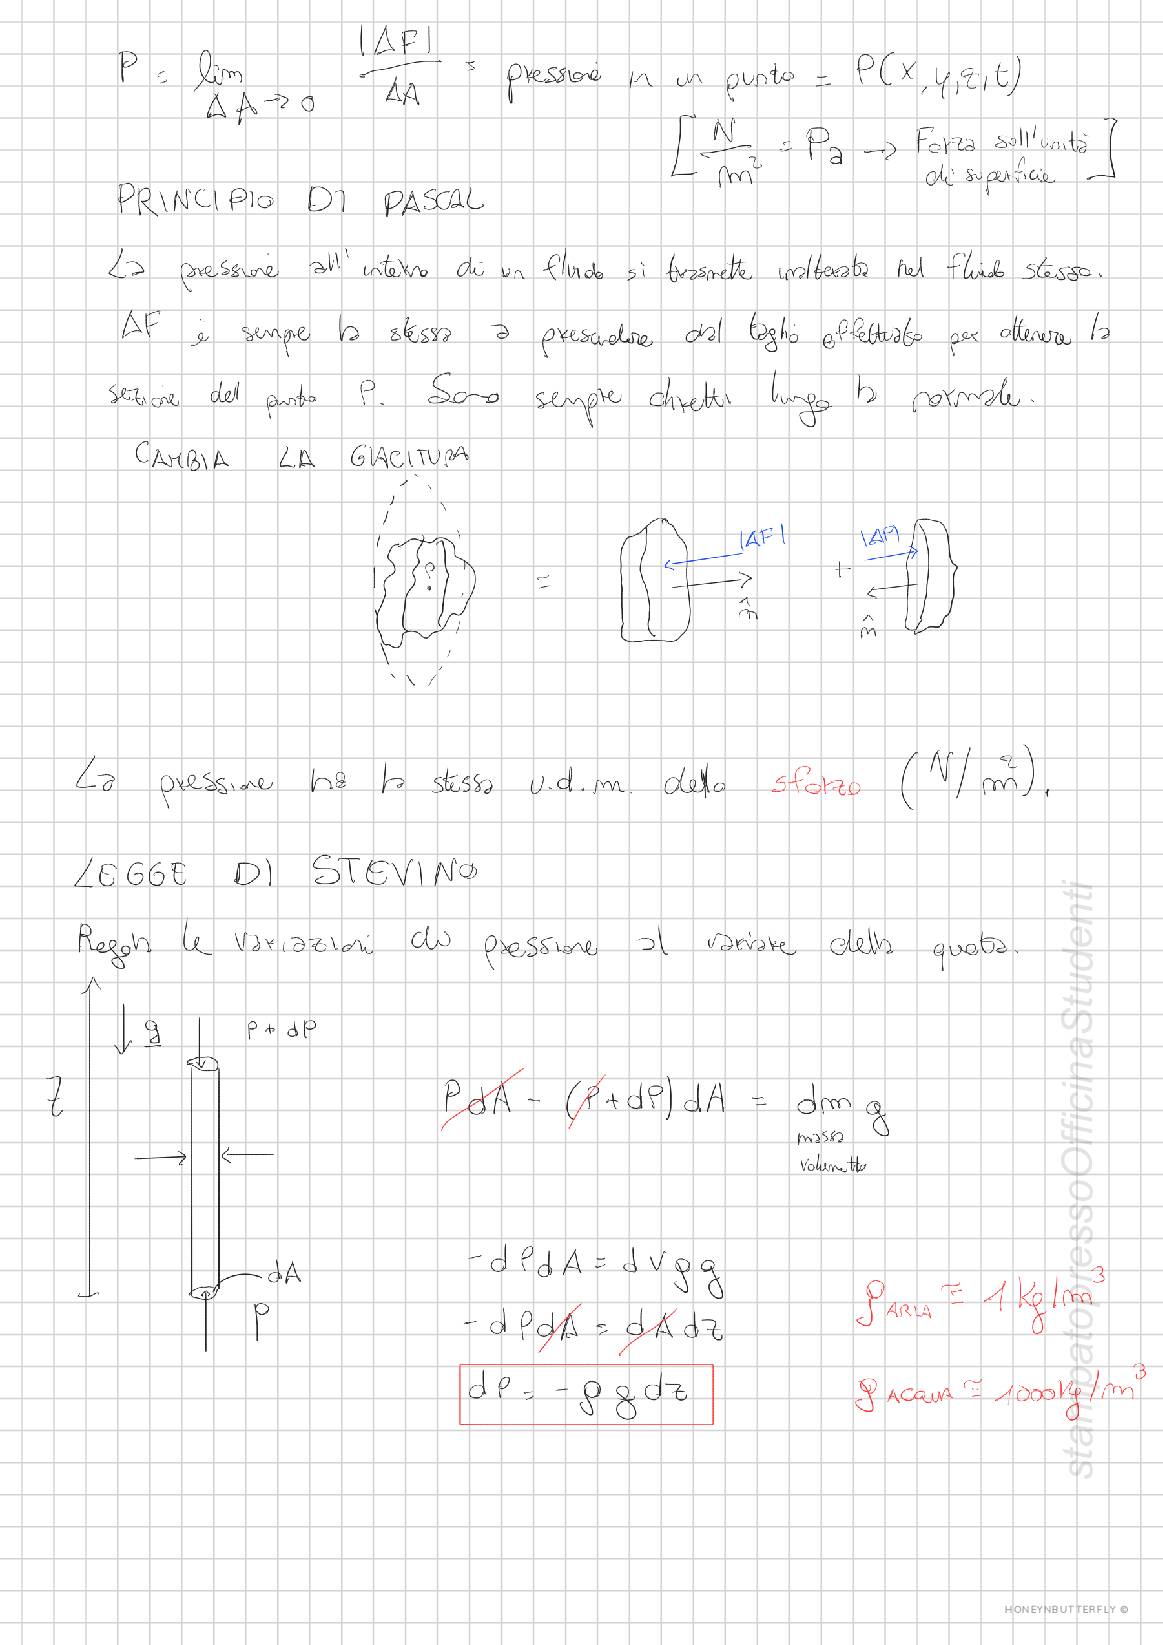 P = lim ΔA→0 |ΔF| / ΔA = pressione in un punto = P(x,y,z,t)
[N/m² = Pa → Forza sull'unità di superficie]
PRINCIPIO DI PASCAL
La pressione all'interno di un fluido si trasmette inalterata nel fluido stesso.
ΔF è sempre la stessa a prescindere dal taglio effettuato per ottenere la
sezione del punto P. Sono sempre diretti lungo la normale.
CAMBIA LA GIACITURA
P
= |ΔF| n̂ + |ΔF| n̂
La pressione ha la stessa u.d.m. dello sforzo (N/m²).
LEGGE DI STEVINO
Regola le variazioni di pressione al variare della quota.
z
g
P + dP
P dA - (P + dP) dA = dm g
massa
volumetto
dA
P
- dP dA = dV ρ g
- dP dA = dA dz
dP = - ρ g dz
ρ ARIA ≅ 1 kg/m³
ρ ACQUA ≅ 1000 kg/m³
stampatopressoOfficinaStudenti
HONEYNBUTTERFLY ©